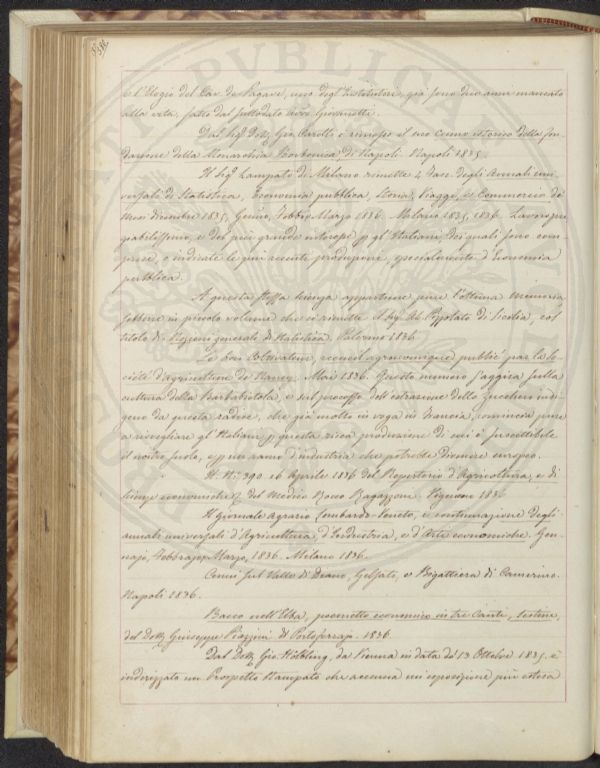 e l'Elogio del Cav. de Pagave, uno degl'Institutori, già sono due anni mancato
alla vita, fatto dal sullodato Giovanetti.
Dal Sig.r Dott. Gio. è rimesso il suo Cenno storico della fon-
dazione della Monarchia Borbonica di Napoli. Napoli 1835.
Il Sig.r Lampato di Milano rimette 4 Fasc. degli Annali uni-
versali di Statistica, Economia pubblica, Storia, Viaggi, e Commercio de'
Mesi dicembre 1835, Genn.o, Febb.o Marzo 1836. Milano 1835, 1836. Lavoro pre-
gabilissimo, e del più grande interesse p. gl'Italiani, dei quali sono com-
prese, e indicate le più recenti produzioni, specialmente d'Economia
pubblica.
A questa stessa scienza appartiene pure l'ottima memoria
in piccolo volume che ci rimette il Sig.r Ab. di Sicilia, col
titolo di Nozioni generali di Statistica. Palermo 1836.
Le bon Cultivateur, recueil agronomique, publié par la So-
ciété d'agriculture de Nancy. Mai 1836. Questo numero s'aggira sulla
cultura della Barbabietola, e sul processo dell'estrazione dello zucchero indi-
geno da questa radice, che già molto in voga in Francia, comincia pure
a risvegliare gl'Italiani p. questa ricca produzione di cui è suscettibile
il nostro suolo, e p. un ramo d'industria che potrebbe divenire europeo.
Il N.o 390 16 Aprile 1836 del Repertorio d'Agricoltura, e di
Scienze economiche del Medico Rocco Ragazzoni.
Il Giornale Agrario Lombardo-Veneto, e continuazione degli
annali universali d'Agricoltura, d'Industria, e d'Arti economiche. Gen-
najo, Febbrajo, Marzo, 1836. Milano 1836.
Cenni sul Vallo di Diano, Gelsete, e Bigattiera di Camerino.
Napoli 1836.
Bacco nell'Elba, poemetto economico in tre Canti,
del Dott. Giuseppe di Portoferrajo. 1836.
Dal Dott. Gio. Hölbling, da Vienna in data de' 13 Ottobre 1835. è
indirizzato un Prospetto stampato che accenna un'esposizione più estesa